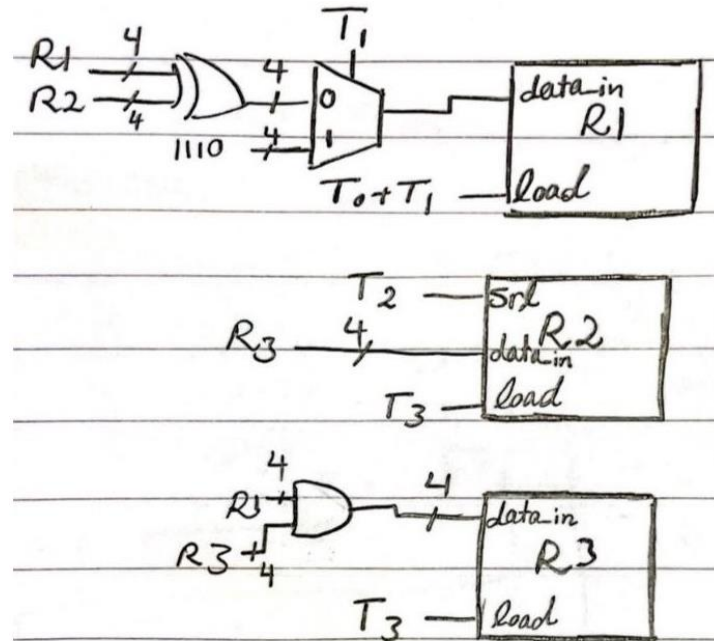 T1
R1 4
R2 4
4 0
1110 4 1
data_in
R1
T0+T1 load
T2 srl
R2
R3 4 data_in
T3 load
R1 4
R3 4
4 data_in
R3
T3 load